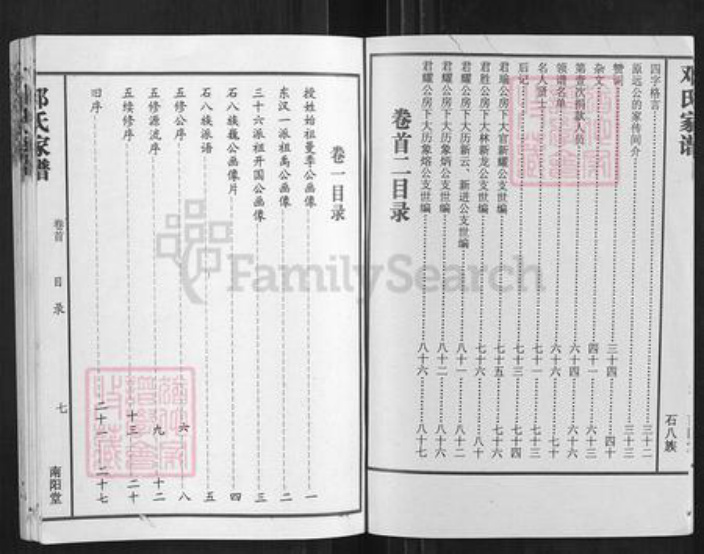 邓氏家谱
石八族
四字格言 三十二
原远公的家传间介 三十三
赞词 三十四
杂文 四十一 六十三
第壹次捐款人员 六十四 六十六
领谱名单 六十六 七十
名人贤士 七十一
后记 七十三 七十四
君瑜公房下大官新耀公支世编 七十五 七十六
君胜公房下大林新龙公支世编 七十六 八十
君耀公房下大历新云、新进公支世编 八十一 八十二
君耀公房下大历象炳公支世编 八十二 八十六
君耀公房下大历象熔公支世编 八十六 八十七
卷首二目录
卷一目录
授姓始祖曼季公画像 一
东汉一派祖禹公画像 二
三十六派祖开国公画像 三
石八族巍公画像片 四
石八族派语 五
五修公序 六 八
五修源流序 九 十二
五续修序 十三 二十
旧序 二十一 二十七
邓氏家谱
卷首
目录
七
南阳堂
FamilySearch